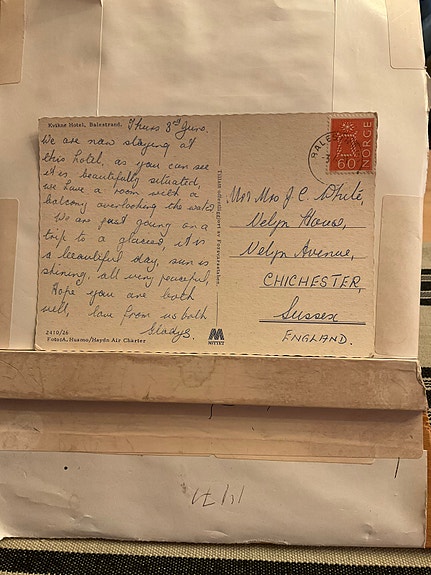 Kvikne Hotel, Balestrand.
Thurs 3rd June.
We are now staying at
this hotel, as you can see
it is beautifully situated,
we have a room with a
balcony overlooking the water
We are just going on a
trip to a glacier, it is
a beautiful day, sun is
shining, all very peaceful,
Hope you are both
well, love from us both
Gladys.
2410/26
Foto: A. Husmo/Høydn Air Charter
MITTET
Tillatt offentliggjort av Forsvarsstaben.
BALES
NORGE
60
Mr & Mrs J C White,
Velyn House,
Velyn Avenue,
CHICHESTER,
Sussex
ENGLAND.